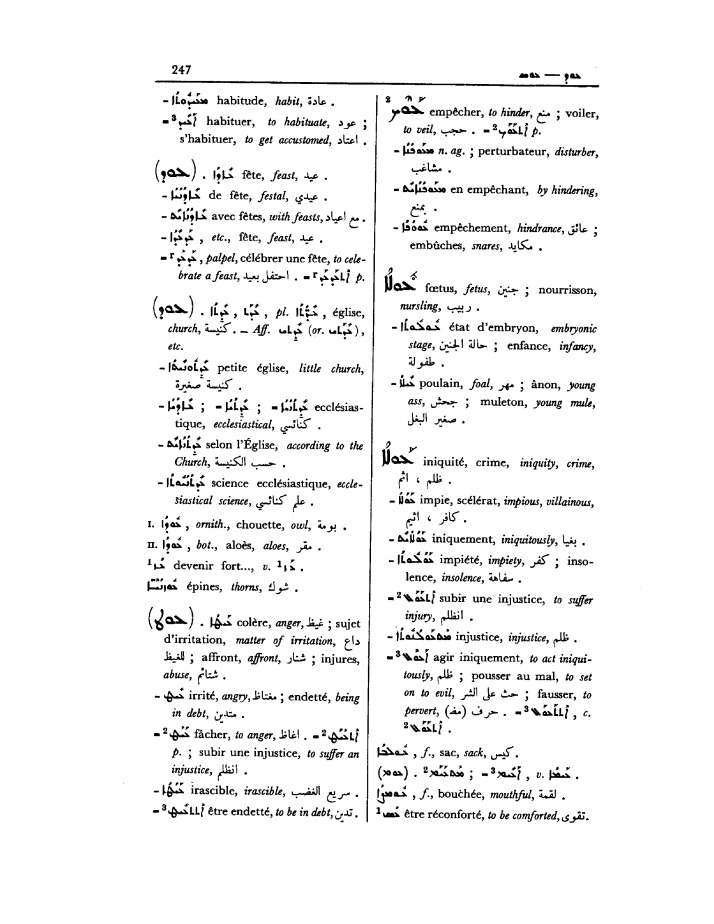 247
ܥܘܕ — ܥܘܣ
- ܡܥܝܕܘܬܐ habitude, habit, عادة .
= ³ ܐܥܝܕ habituer, to habituate, عود ;
s'habituer, to get accustomed, اعتاد .
(ܥܘܕ) . ܥܐܕܐ fête, feast, عيد .
- ܥܐܕܢܝܐ de fête, festal, عيدي .
- ܥܐܕܢܐܝܬ avec fêtes, with feasts, مع اعياد .
- ܥܕܥܐܕܐ , etc., fête, feast, عيد .
= ʳ ܥܕܥܕ , palpel, célébrer une fête, to cele-
brate a feast, احتفل بعيد . = ʳ ܐܬܥܕܥܕ p.
(ܥܘܕ) . ܥܕܬܐ , pl. ܥܕܬܐ , église,
church, كنيسة . – Aff. (or. ) ,
etc.
- ܥܕܬܘܢܝܬܐ petite église, little church,
كنيسة صغيرة .
- ; = ; = ܥܕܬܢܝܐ ecclésias-
tique, ecclesiastical, كنائسي .
- ܥܕܬܢܐܝܬ selon l'Église, according to the
Church, حسب الكنيسة .
- ܥܕܬܢܝܘܬܐ science ecclésiastique, eccle-
siastical science, علم كنائسي .
I. , ornith., chouette, owl, بومة .
II. , bot., aloès, aloes, مقر .
¹ devenir fort..., v. ¹ .
épines, thorns, شوك .
(ܥܘܛ) . ܥܝܛܐ colère, anger, غيظ ; sujet
d'irritation, matter of irritation, داع
للغيظ ; affront, affront, شنار ; injures,
abuse, شتائم .
- ܥܝܛ irrité, angry, مغتاظ ; endetté, being
in debt, متدين .
= ² fâcher, to anger, اغاظ . = ²
p. ; subir une injustice, to suffer an
injustice, انظلم .
- irascible, irascible, سريع الغضب .
= ³ être endetté, to be in debt, تدين .
² ܥܘܟ empêcher, to hinder, منع ; voiler,
to veil, حجب . = ² ܐܬܥܘܟ p.
- ܡܥܘܟܢܐ n. ag. ; perturbateur, disturber,
مشاغب .
- ܡܥܘܟܢܐܝܬ en empêchant, by hindering,
بمنع .
- ܥܘܘܟܐ empêchement, hindrance, عائق ;
embûches, snares, مكايد .
ܥܘܠܐ fœtus, fetus, جنين ; nourrisson,
nursling, ربيب .
- ܥܘܠܘܬܐ état d'embryon, embryonic
stage, حالة الجنين ; enfance, infancy,
طفولة .
- ܥܝܠܐ poulain, foal, مهر ; ânon, young
ass, جحش ; muleton, young mule,
صغير البغل .
ܥܘܠܐ iniquité, crime, iniquity, crime,
ظلم ، اثم .
- ܥܘܠܐ impie, scélérat, impious, villainous,
كافر ، اثيم .
- ܥܘܠܐܝܬ iniquement, iniquitously, بغيا .
- ܥܘܠܘܬܐ impiété, impiety, كفر ; inso-
lence, insolence, سفاهة .
= ² ܐܬܥܘܠ subir une injustice, to suffer
injury, انظلم .
- injustice, injustice, ظلم .
= ³ ܐܥܘܠ agir iniquement, to act iniqui-
tously, ظلم ; pousser au mal, to set
on to evil, حث على الشر ; fausser, to
pervert, حرف (مف) . = ³ ܐܬܬܥܘܠ , c.
² ܐܬܥܘܠ .
, f., sac, sack, كيس .
(ܥܘܡ) . ² ; = ³ , v. .
, f., bouchée, mouthful, لقمة .
¹ être réconforté, to be comforted, تقوى .